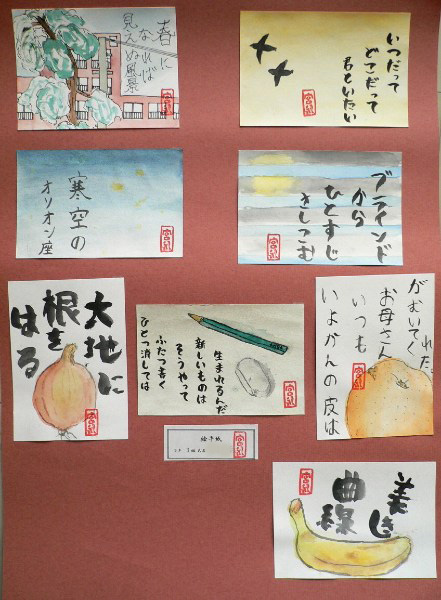 春に
なれば
見えぬ風景
いつだって
どこだって
君といたい
寒空の
オリオン座
ブラインド
から
ひとすじ
さしこむ
大地に
根を
はる
ひとつ消しては
ふたつ書く
そうやって
新しいものは
生まれるんだ
いよかんの皮は
いつも
お母さん
がむいてく
れた
絵手紙
美しき
曲線